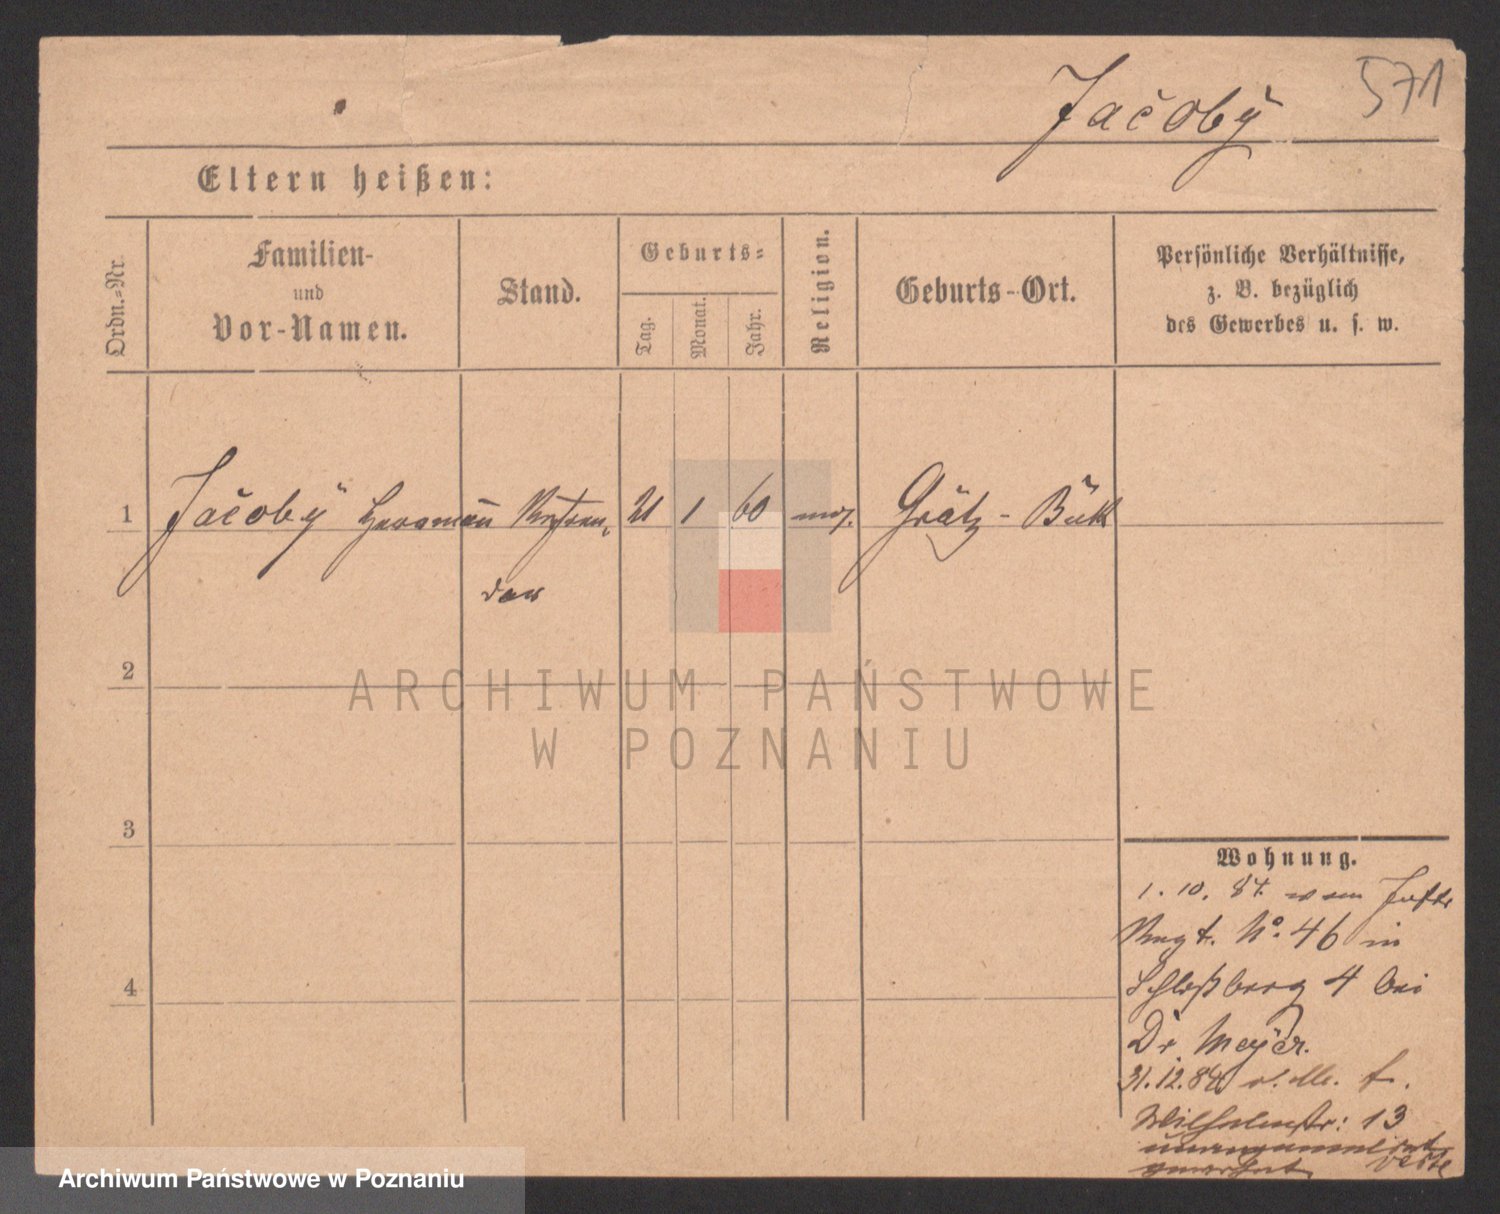 571
Jacoby
Eltern heißen:
Ordn.-Nr.
Familien-
und
Vor-Namen.
Stand.
Geburts-
Tag.
Monat.
Jahr.
Religion.
Geburts-Ort.
Persönliche Verhältnisse,
z. B. bezüglich
des Gewerbes u. s. w.
1 Jacoby Hermann Referen- 21 1 60 mos. Grätz - Buk
dar
2
ARCHIWUM PAŃSTWOWE
W POZNANIU
3
4
Wohnung.
1. 10. 84. vom Inftr
Regt. No. 46 in
Schloßberg 4 bei
Dr Meyer.
31.12.84
Wilhelmstr: 13
Archiwum Państwowe w Poznaniu